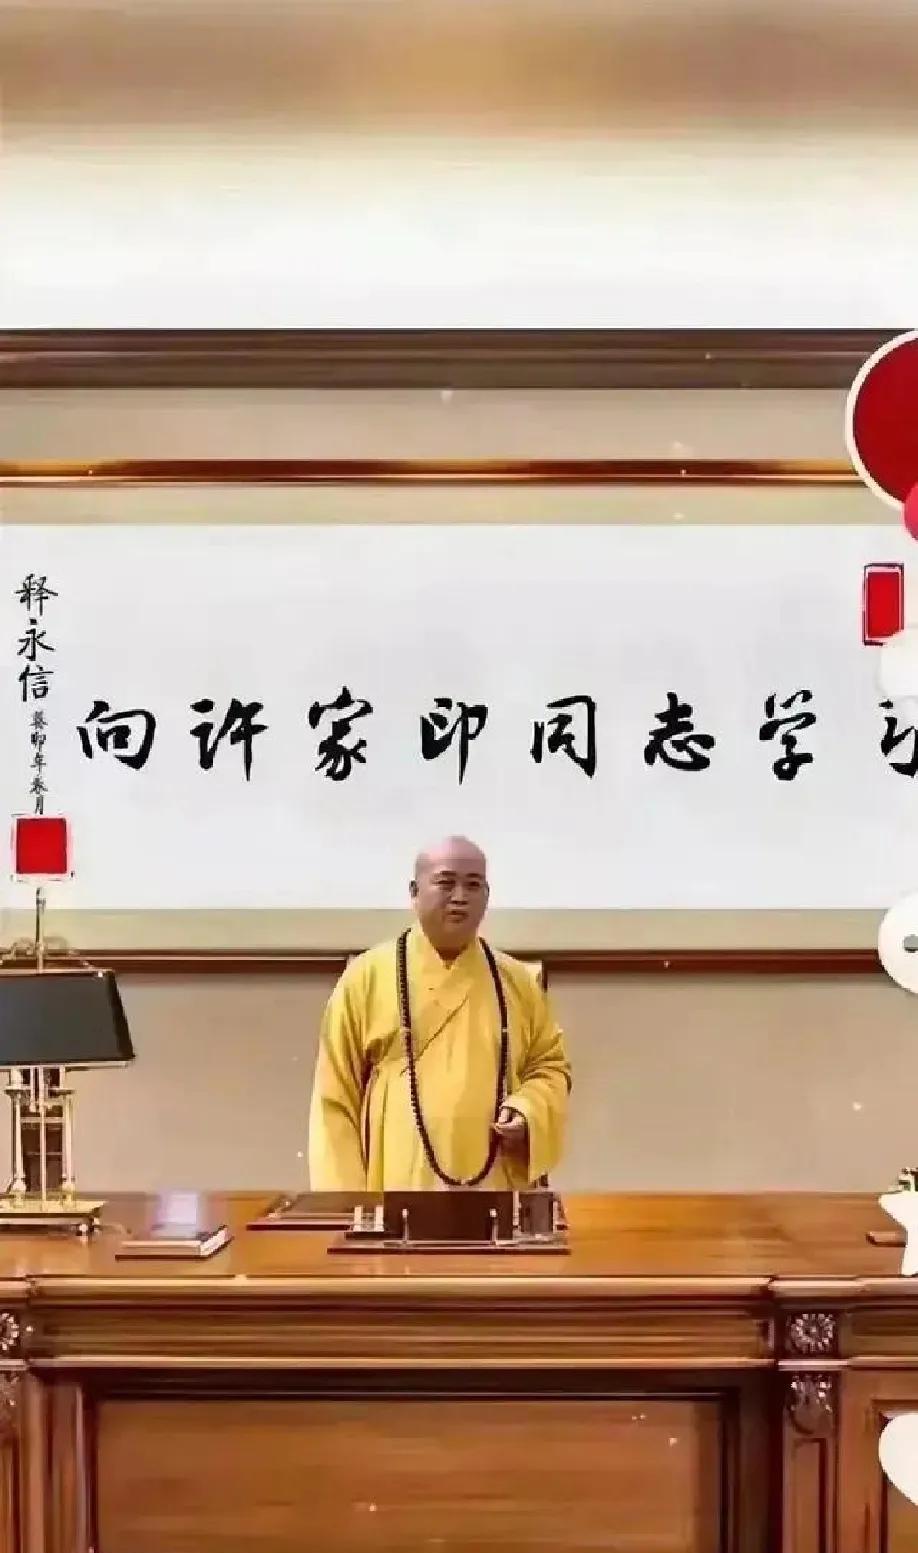 向许家印同志学习
释永信
癸卯年春月